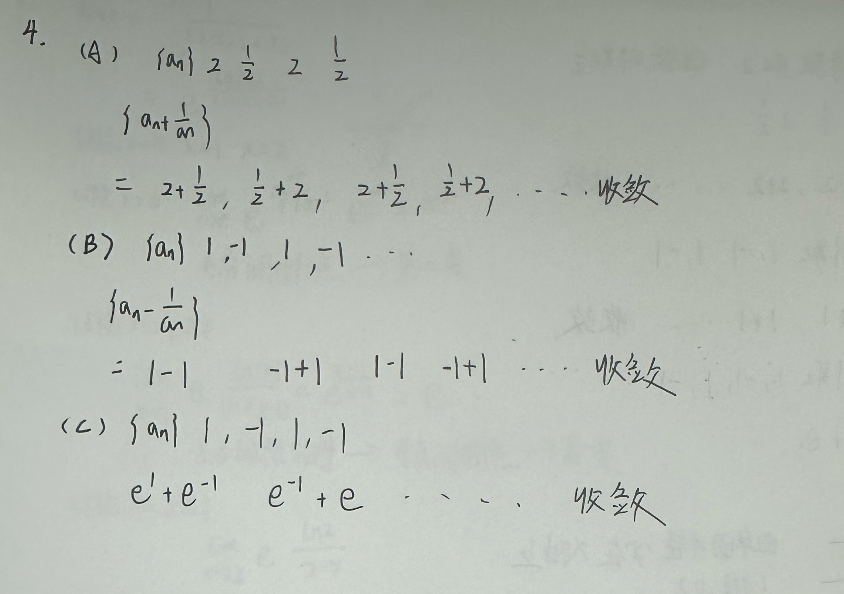 4.
(A) {an} 2 1/2 2 1/2
{an+1/an}
= 2+1/2, 1/2+2, 2+1/2, 1/2+2, .... 收敛
(B) {an} 1,-1,1,-1...
{an-1/an}
= 1-1 -1+1 1-1 -1+1 .... 收敛
(C) {an} 1,-1,1,-1
e¹+e⁻¹ e⁻¹+e .... 收敛